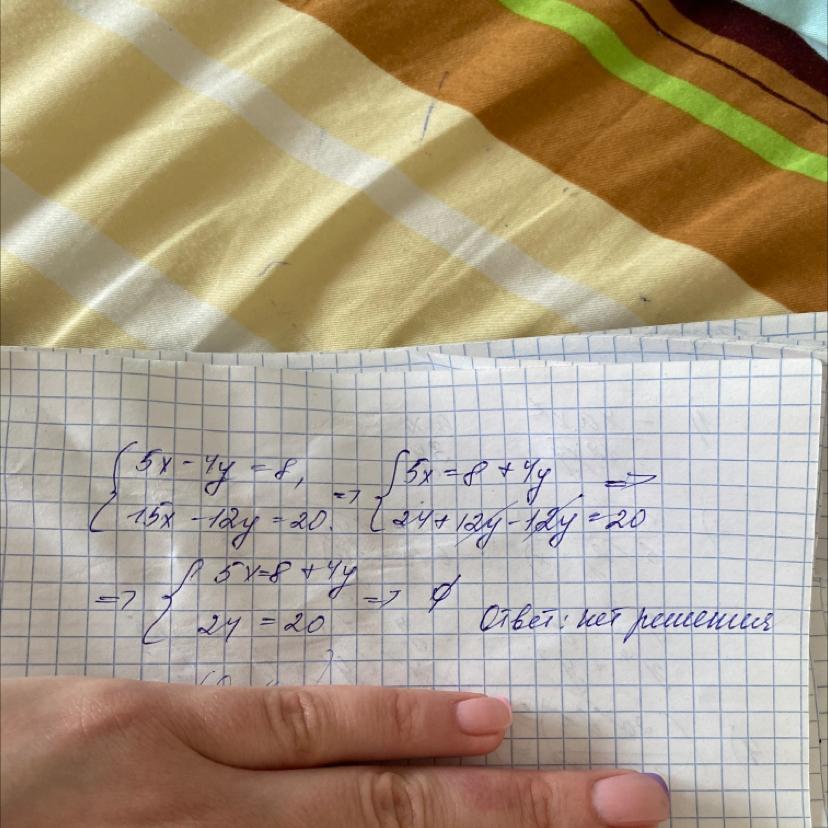 { 5x - 4y = 8, 15x - 12y = 20. => { 5x = 8 + 4y 24 + 12y - 12y = 20 =>
=> { 5x = 8 + 4y 24 = 20 => ∅ Ответ: нет решения